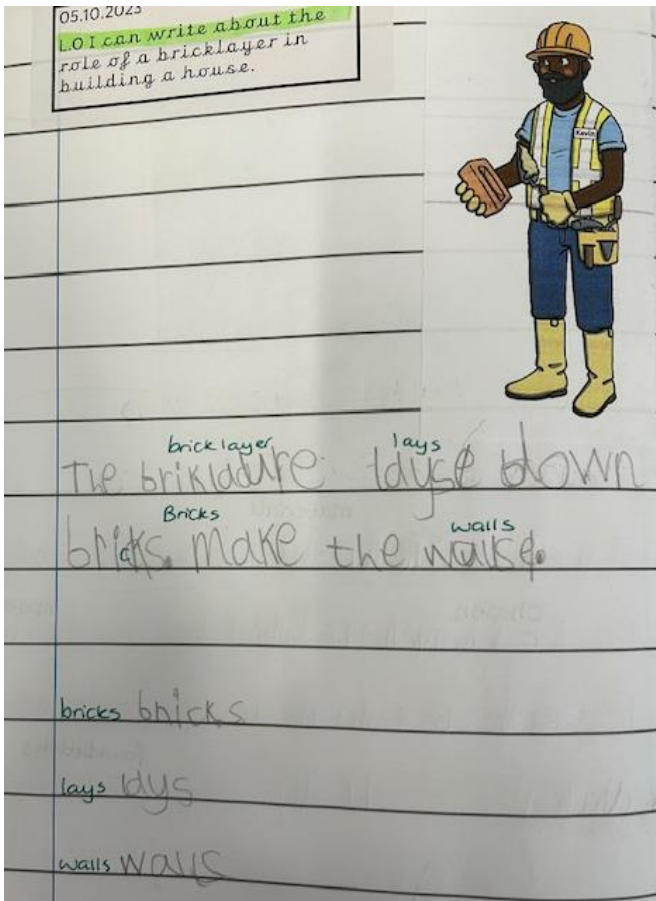 05.10.2023
L.O I can write about the
role of a bricklayer in
building a house.
Kevin
bricklayer lays
The brikladure layse down
Bricks walls
bricks. make the wallse.
bricks bricks
lays lays
walls walls